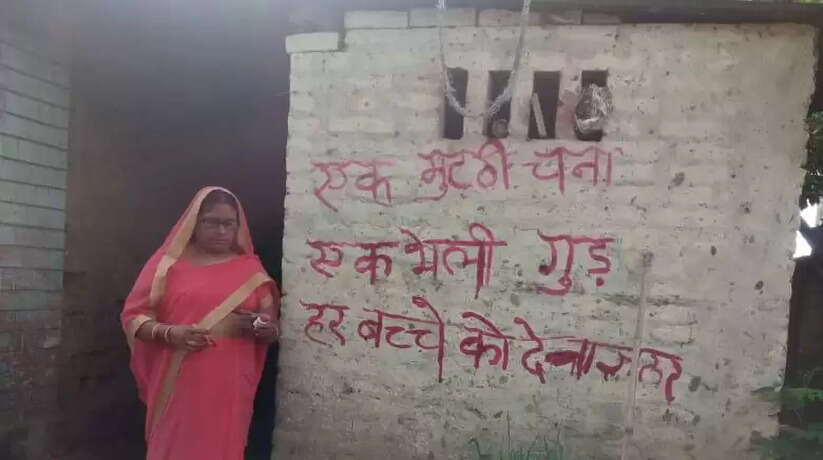 एक मुट्ठी चना
एक भेली गुड़
हर बच्चे को देना रुलर